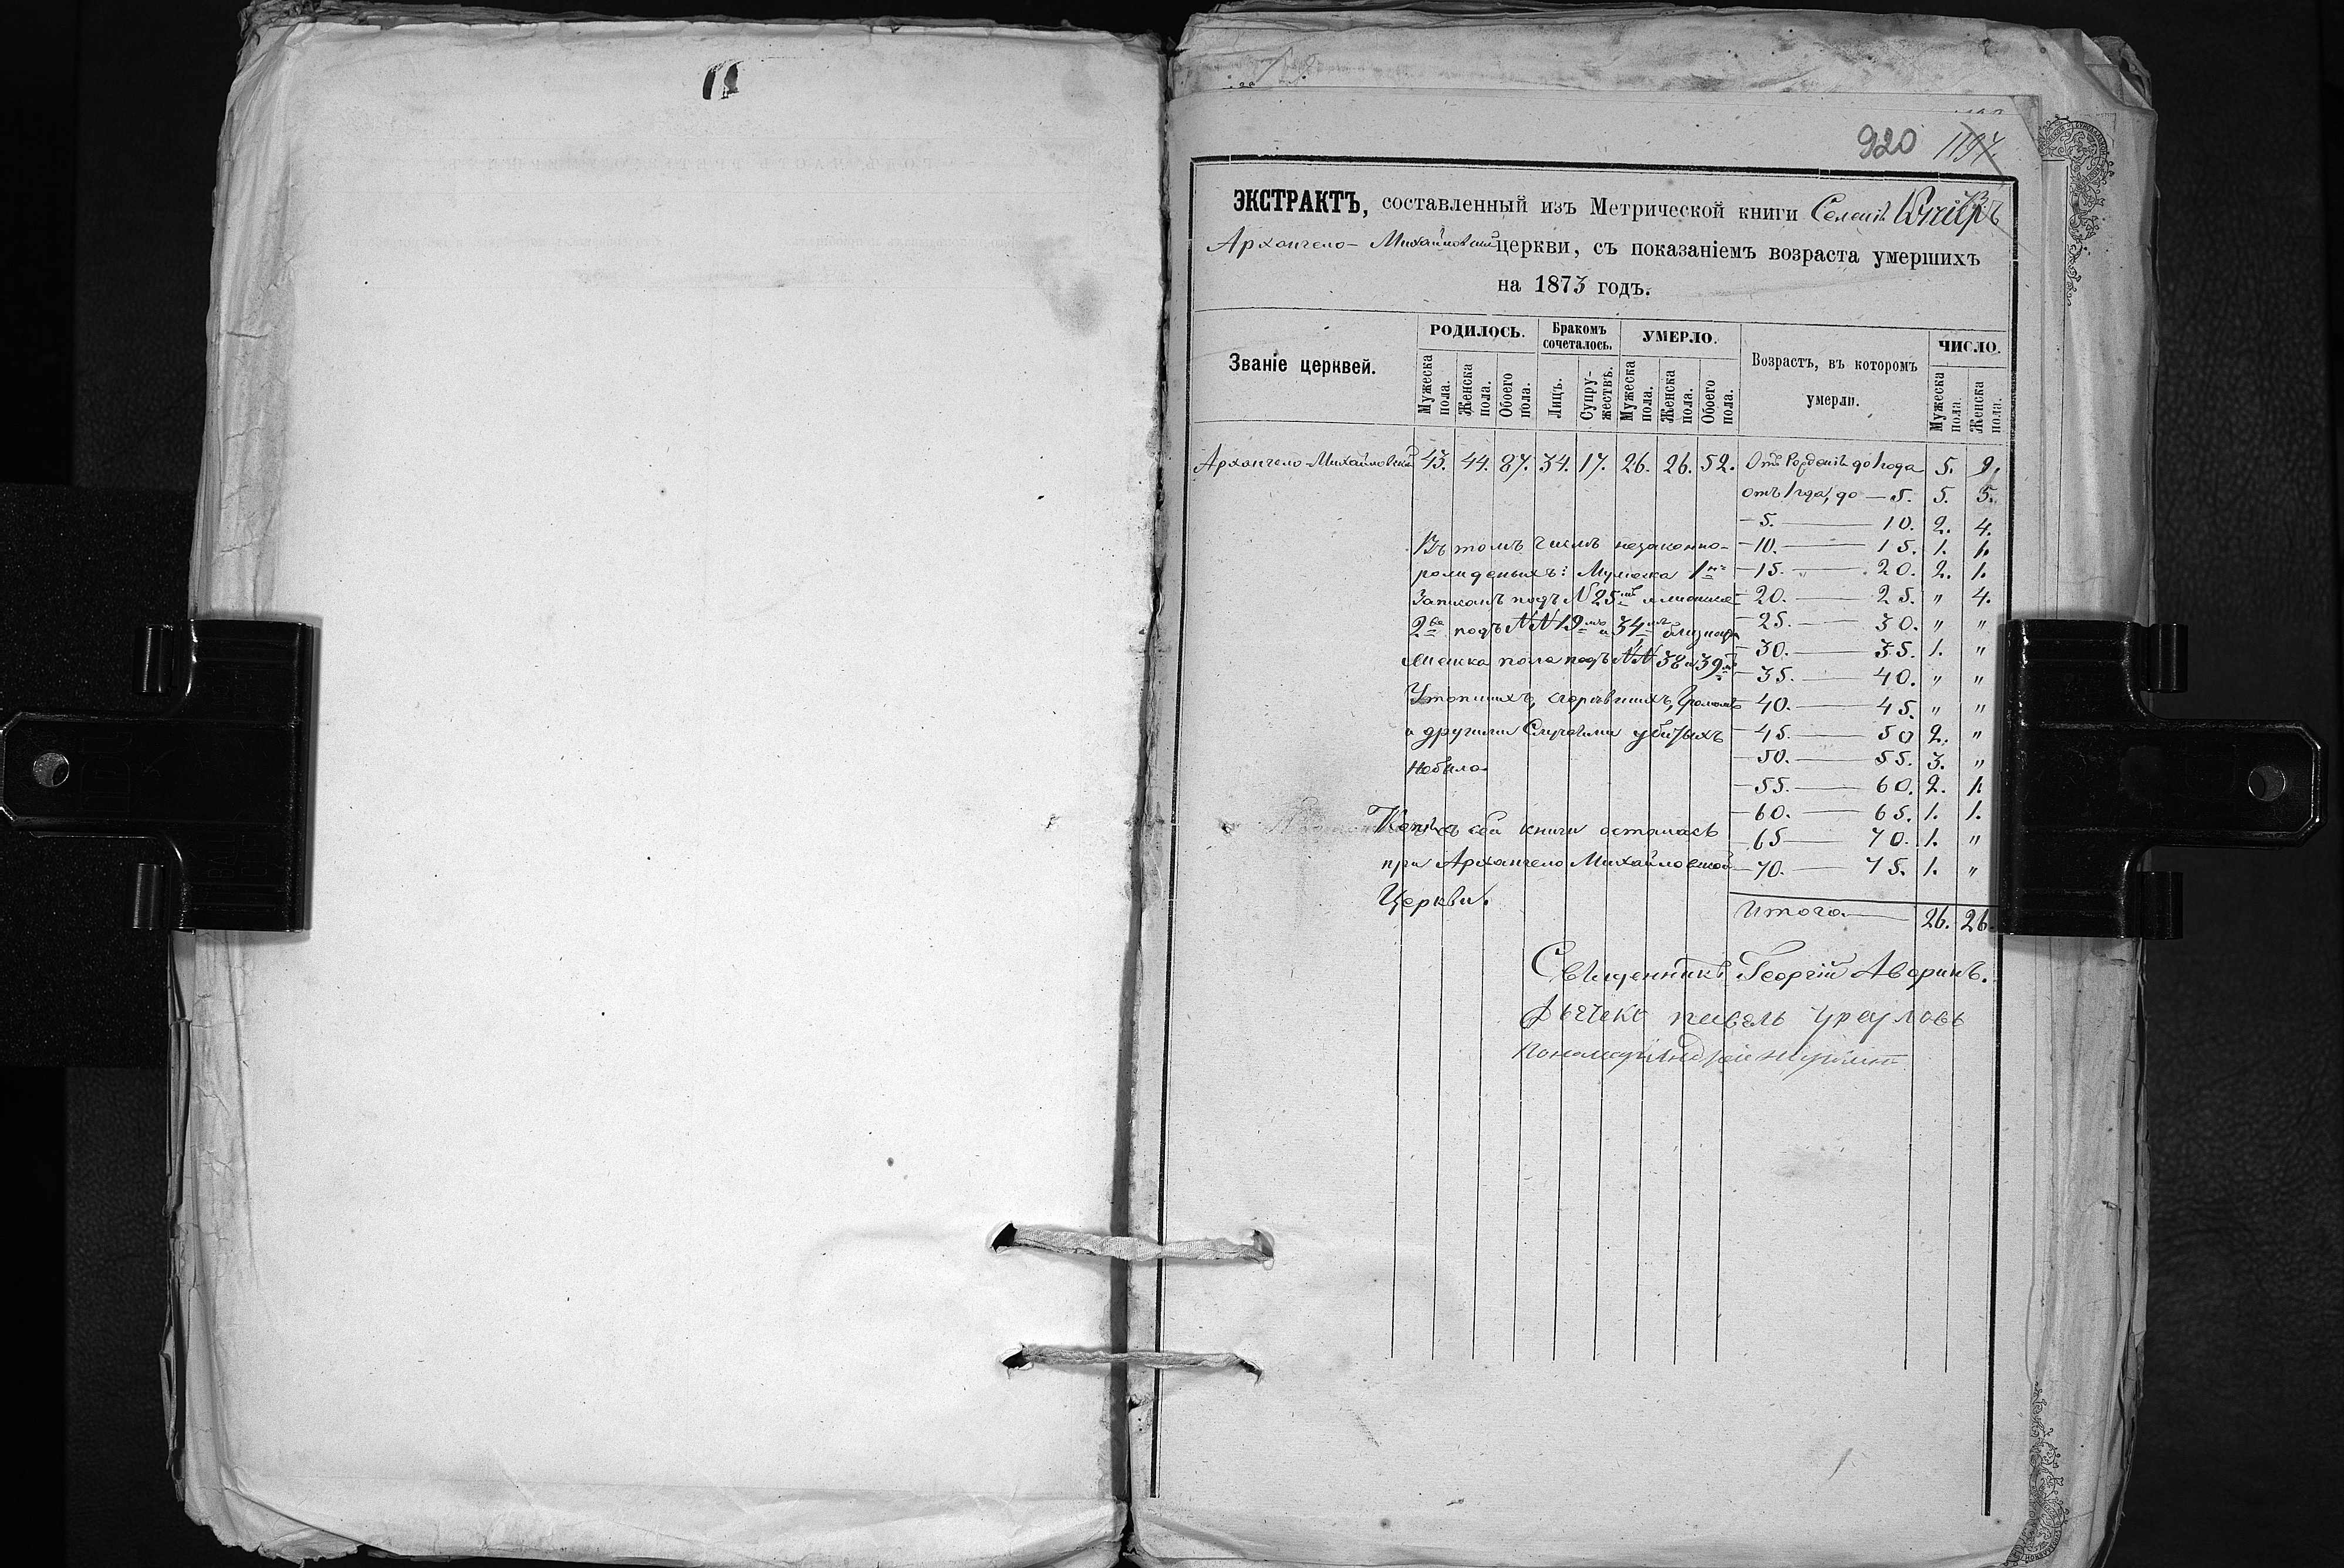 920 1194
ЭКСТРАКТЪ, составленный изъ Метрической книги Селенія
Архангело-Михайловской церкви, съ показаніемъ возраста умершихъ
на 1873 годъ.
Званіе церквей.
РОДИЛОСЬ.
Мужеска пола.
Женска пола.
Обоего пола.
Бракомъ сочеталось.
Лицъ.
Супружествъ.
УМЕРЛО.
Мужеска пола.
Женска пола.
Обоего пола.
Возрастъ, въ которомъ умерли.
ЧИСЛО.
Мужеска пола.
Женска пола.
Архангело-Михайловской 43. 44. 87. 34. 17. 26. 26. 52. Отъ Рожденія до 1 года 5. 9.
отъ 1 года, до — 5. 5. 5.
— 5. — 10. 2. 4.
Въ томъ числѣ незаконно- — 10. — 15. 1. 1.
рожденыхъ: Мужеска 1 — 15. — 20. 2. 1.
Записанъ подъ N 25 — 20. — 25. " 4.
2 подъ NN 19 и 34 близнецы — 25. — 30. " "
женска пола подъ NN 38 и 39 — 30. — 35. 1. "
— 35. — 40. " "
Утопшихъ, сгорѣвшихъ, Громомъ — 40. — 45. " "
и другими Случаями убитыхъ — 45. — 50 2. "
небыло — 50. — 55. 3. "
— 55. — 60. 2. 1.
— 60. — 65. 1. 1.
Копія съ сей книги осталась 65 — 70. 1. "
при Архангело Михайловской — 70. — 75. 1. "
Церкви.
Итого — 26. 26.
Священникъ Георгій Аворинъ.
Дьячекъ павелъ
понамарь Андрей